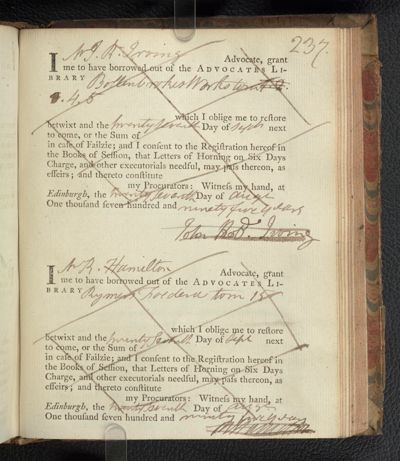 237.
I Mr J. R. Irving Advocate, grant
me to have borrowed out of the ADVOCATES LI-
BRARY Bollenbrokes Works
4. 5
which I oblige me to restore
betwixt and the twenty seventh Day of Sept next
to come, or the Sum of
in case of Failzie; and I consent to the Registration hereof in
the Books of Session, that Letters of Horning on Six Days
Charge, and other executorials needful, may pass thereon, as
effeirs; and thereto constitute
my Procurators: Witness my hand, at
Edinburgh, the twenty seventh Day of augt
One thousand seven hundred and ninety five years
John Robt. Irving
I Mr R. Hamilton Advocate, grant
me to have borrowed out of the ADVOCATES LI-
BRARY Rymers foedera tom 15
which I oblige me to restore
betwixt and the twenty seventh Day of Sept next
to come, or the Sum of
in case of Failzie; and I consent to the Registration hereof in
the Books of Session, that Letters of Horning on Six Days
Charge, and other executorials needful, may pass thereon, as
effeirs; and thereto constitute
my Procurators: Witness my hand, at
Edinburgh, the twenty seventh Day of augt
One thousand seven hundred and ninety five years